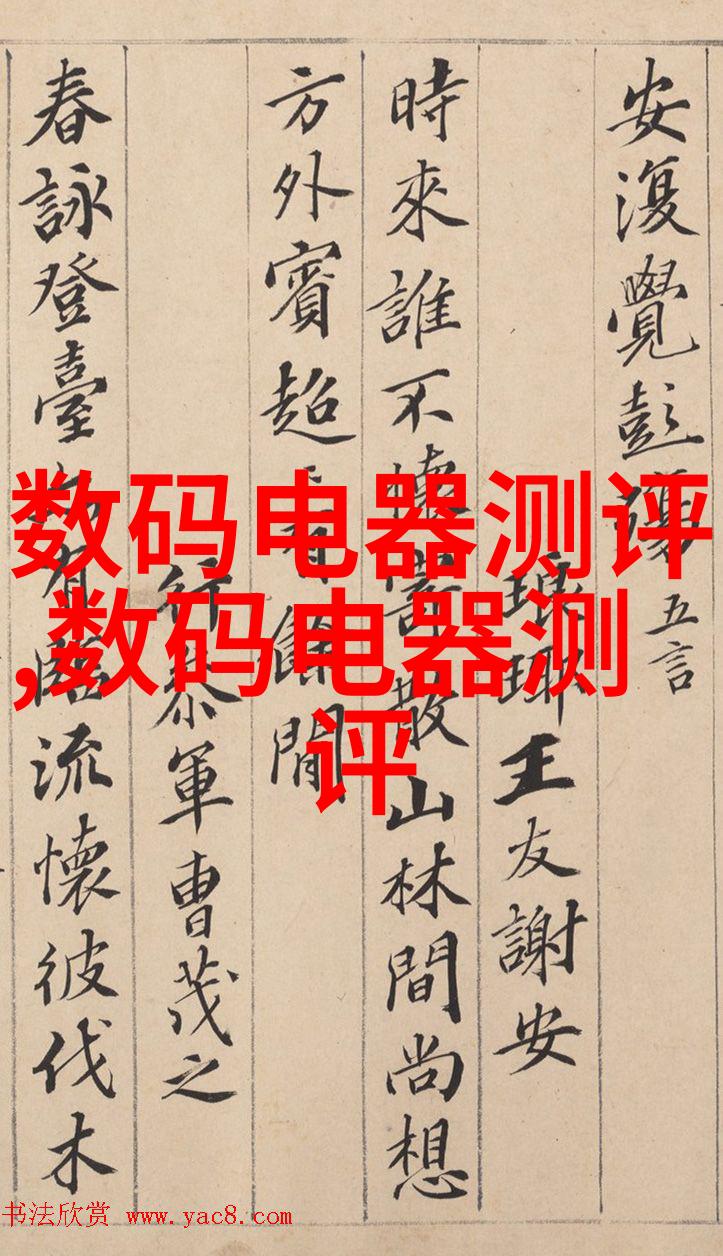 安復覺彭殤五言
琅琊王友謝安
時來誰不懷寄散山林間尚想
方外賓超有餘間
行叅軍曹茂之
春詠登臺亦有臨流懷彼伐木
数码电器测评
,数码电器测
评
书法欣赏 www.yac8.com